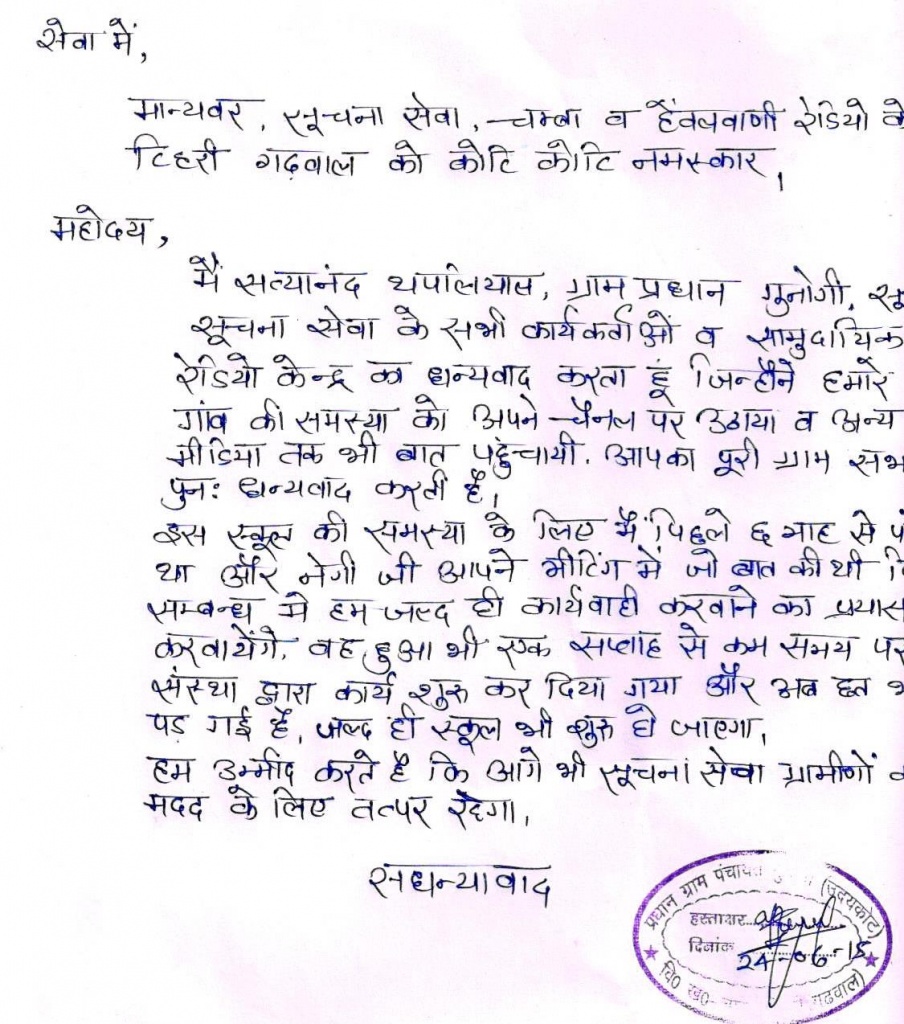 सेवा में,
मान्यवर, सूचना सेवा, चम्बा व हेंवलवाणी रेडियो के
टिहरी गढ़वाल को कोटि कोटि नमस्कार,
महोदय,
मैं सत्यानंद थपलियाल, ग्राम प्रधान गुनोगी,
सूचना सेवा के सभी कार्यकर्ताओं व सामुदायिक
रेडियो केन्द्र का धन्यवाद करता हूं जिन्होंने हमारे
गांव की समस्या को अपने चैनल पर उठाया व अन्य
मीडिया तक भी बात पहुंचायी. आपका पूरी ग्राम सभ
पुनः धन्यवाद करती है,
इस स्कूल की समस्या के लिए मैं पिछले ६ माह से
था और नेगी जी आपने मीटिंग में जो बात की थी
सम्बन्ध मे हम जल्द ही कार्यवाही करवाने का प्रयास
करवायेंगे, वह हुआ भी एक सप्ताह से कम समय पर
संस्था द्वारा कार्य शुरू कर दिया गया और अब छत
पड़ गई है, जल्द ही स्कूल भी शुरू हो जाएगा,
हम उम्मीद करते है कि आगे भी सूचना सेवा ग्रामीणों
मदद के लिए तत्पर रहेगा,
सधन्यावाद
प्रधान ग्राम पंचायत (उदयकोट)
हस्ताक्षर
दिनांक 24-06-15
वि० ख०- गढवाल)